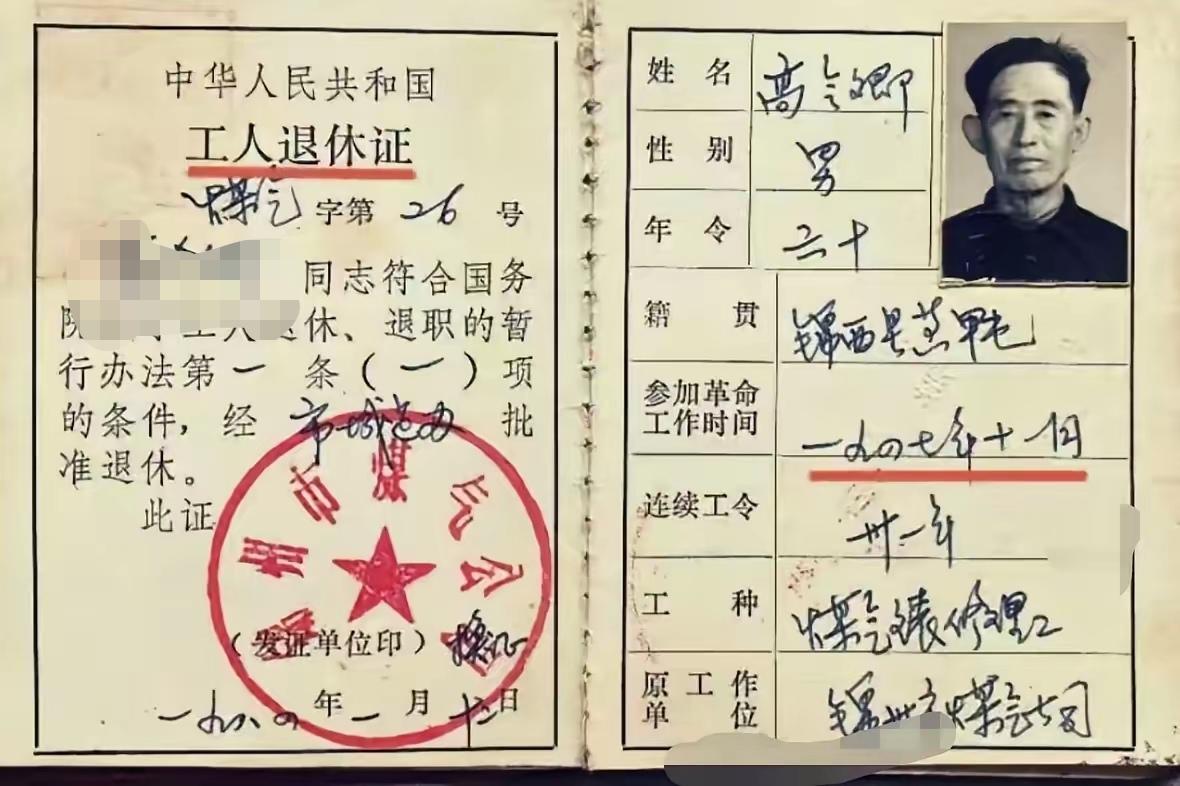 中华人民共和国
工人退休证
煤气字第 26 号
同志符合国务
工人退休、退职的暂
行办法第一条(一)项
的条件，经 市城建办 批
准退休。
此证
州市煤气公司
(发证单位印) 换证
一九八四年一月十二日
姓名 高
性别 男
年令 六十
籍贯 锦西县
参加革命
工作时间 一九四七年十一月
连续工令 卅一年
工种 煤气表修理工
原工作
单位 锦州市煤气公司